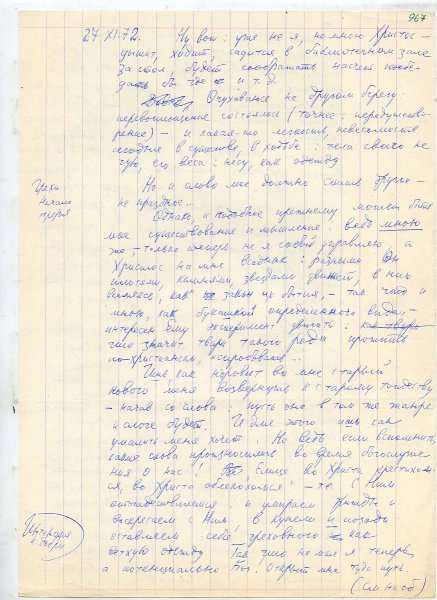 967
27 XI.72. Ну вот: уже не я, но мною Христос
дышит, ходит, садится в библиотечном зале
за стол, будет соображать насчет пообе-
дать бы где и т.д.
Очухивание на другом берегу:
перевоплощение состоялось (точнее: передушество-
рение) — и какая-то легкость, невесомость
в существе, в ходьбе: тела своего не
чую, его веса: несу, как одежду
Грехи
Начало
Но и слово мое должно стать другое —
не праздное...
Однако, и подобное прежнему может быть
мое существование и мышление: ведь мною
же, — только теперь не я собой управляю, а
Христос на мне всадник: разными Он
камнями, звездами движет, в них
вселяясь, как закон их бытия, — так что и
мною, как букашкой определенного вида,
интересен Ему эксперимент двигать:
что значит твари такого рода прожить
по-христиански, испробовать...
Ишь как норовит во мне старый
нового меня возвернуть к старому тождеству
— начав со слова: пусть оно в том же жанре
и слоге будет. И для этого ишь как
умалить меня хочет. Но ведь если вспомнить,
какие слова произносились во время богослуже-
ния о нас! Елице во Христа крестихом-
ся, во Христа облекохомся" — т.е. с Ним
отождествляемся: и умираем
воскресаем с Ним, в купели и позади
оставляем себя, греховного как
ветхую одежду Так что не мал я теперь,
а потенциально Бог. Открыт мне туда путь.